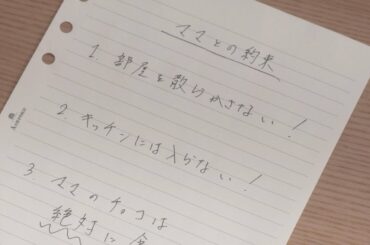 ママとの約束
1. 部屋を散らかさない!
2. キッチンには入らない!
3 ママのチョコは
絶対に食